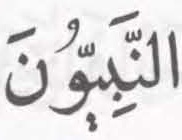 النَّبِيُّونَ